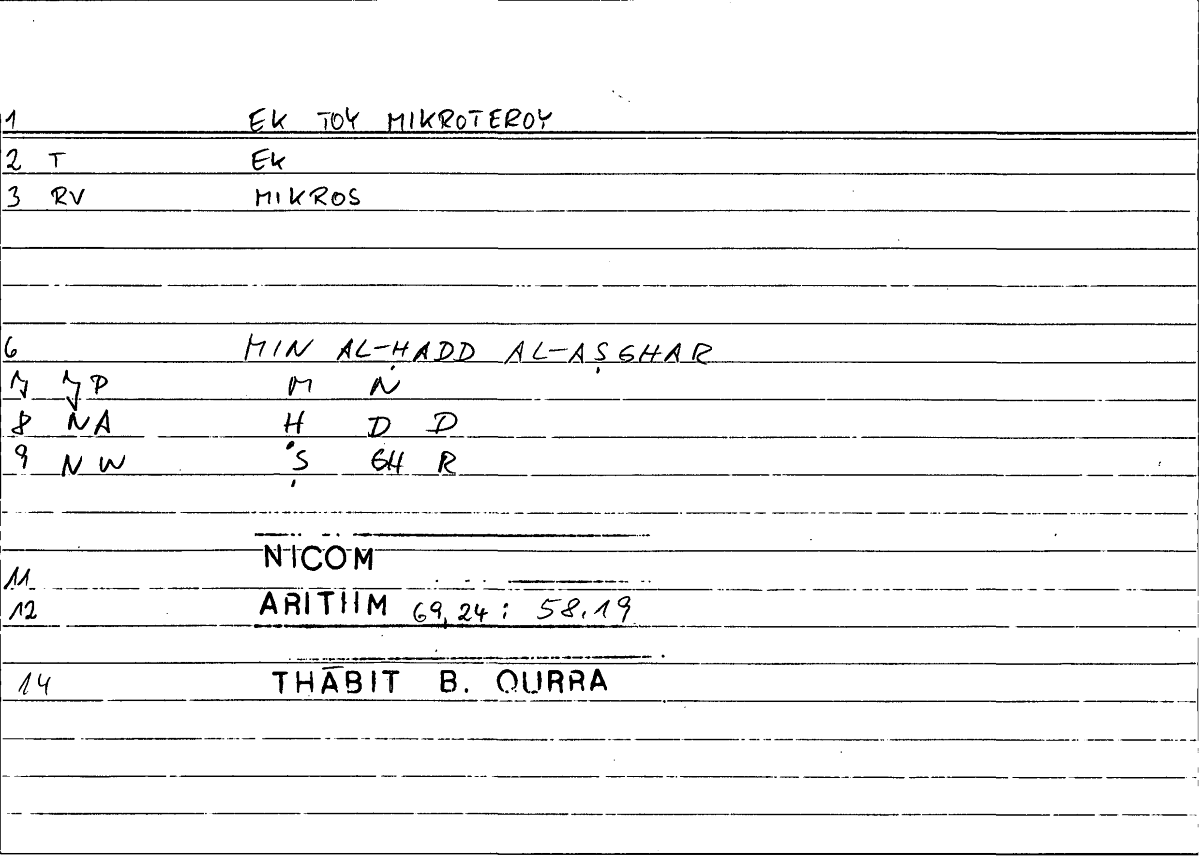 1 EK TOY MIKROTEROY
2 T EK
3 RV MIKROS
6 MIN AL-ḤADD AL-AṢGHAR
7 JP M N
8 NA Ḥ D D
9 NW Ṣ GH R
11 NICOM
12 ARITHM 69,24 : 58.19
14 THĀBIT B. QURRA